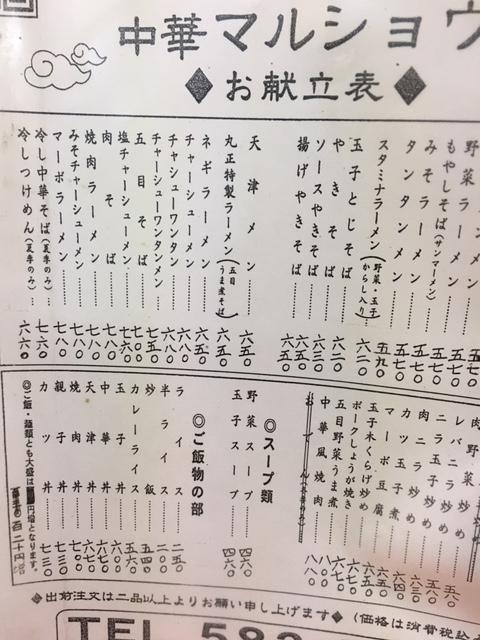 中華マルショウ
◆お献立表◆
野菜ラーメン 五七〇
もやしそば(サンマーメン) 五七〇
みそラーメン 五七〇
タンタンメン 五七〇
スタミナラーメン(野菜・玉子からし入り) 五九〇
玉子とじそば 六二〇
やきそば 六二〇
ソースやきそば 六三〇
揚げやきそば 六五〇
天津メン 六五〇
丸正特製ラーメン(五目うま煮そば) 六五〇
ネギラーメン 六五〇
チャーシューメン 六八〇
チャシューワンタン 六八〇
チャーシューワンタンメン 七五〇
五目そば 七〇〇
塩チャーシューメン 七六〇
肉そば 七八〇
焼肉ラーメン 七八〇
みそチャーシューメン 七八〇
マーボラーメン 七八〇
冷し中華そば(夏季のみ) 七六〇
冷しつけめん(夏季のみ) 六六〇
肉野菜炒め
レバニラ炒め
ニラ玉子炒め
肉ニラ炒め
カツ玉子煮
マーボ豆腐
玉子木くらげ炒め
ポークしょうが焼き
五目野菜うま煮
中華風焼肉 八八〇
◎スープ類
野菜スープ 四六〇
玉子スープ 四六〇
◎ご飯物の部
ライス 二五〇
半ライス 二〇〇
炒飯 五四〇
カレーライス 五六〇
玉子丼 六〇〇
中華丼 六七〇
天津丼 六七〇
焼肉丼 七〇〇
親子丼 七三〇
カツ丼 七三〇
◎ご飯・麺類とも大盛は 円増となります。
百二十円増
◆出前注文は二品以上よりお願い申し上げます◆(価格は消費税込
TEL 582